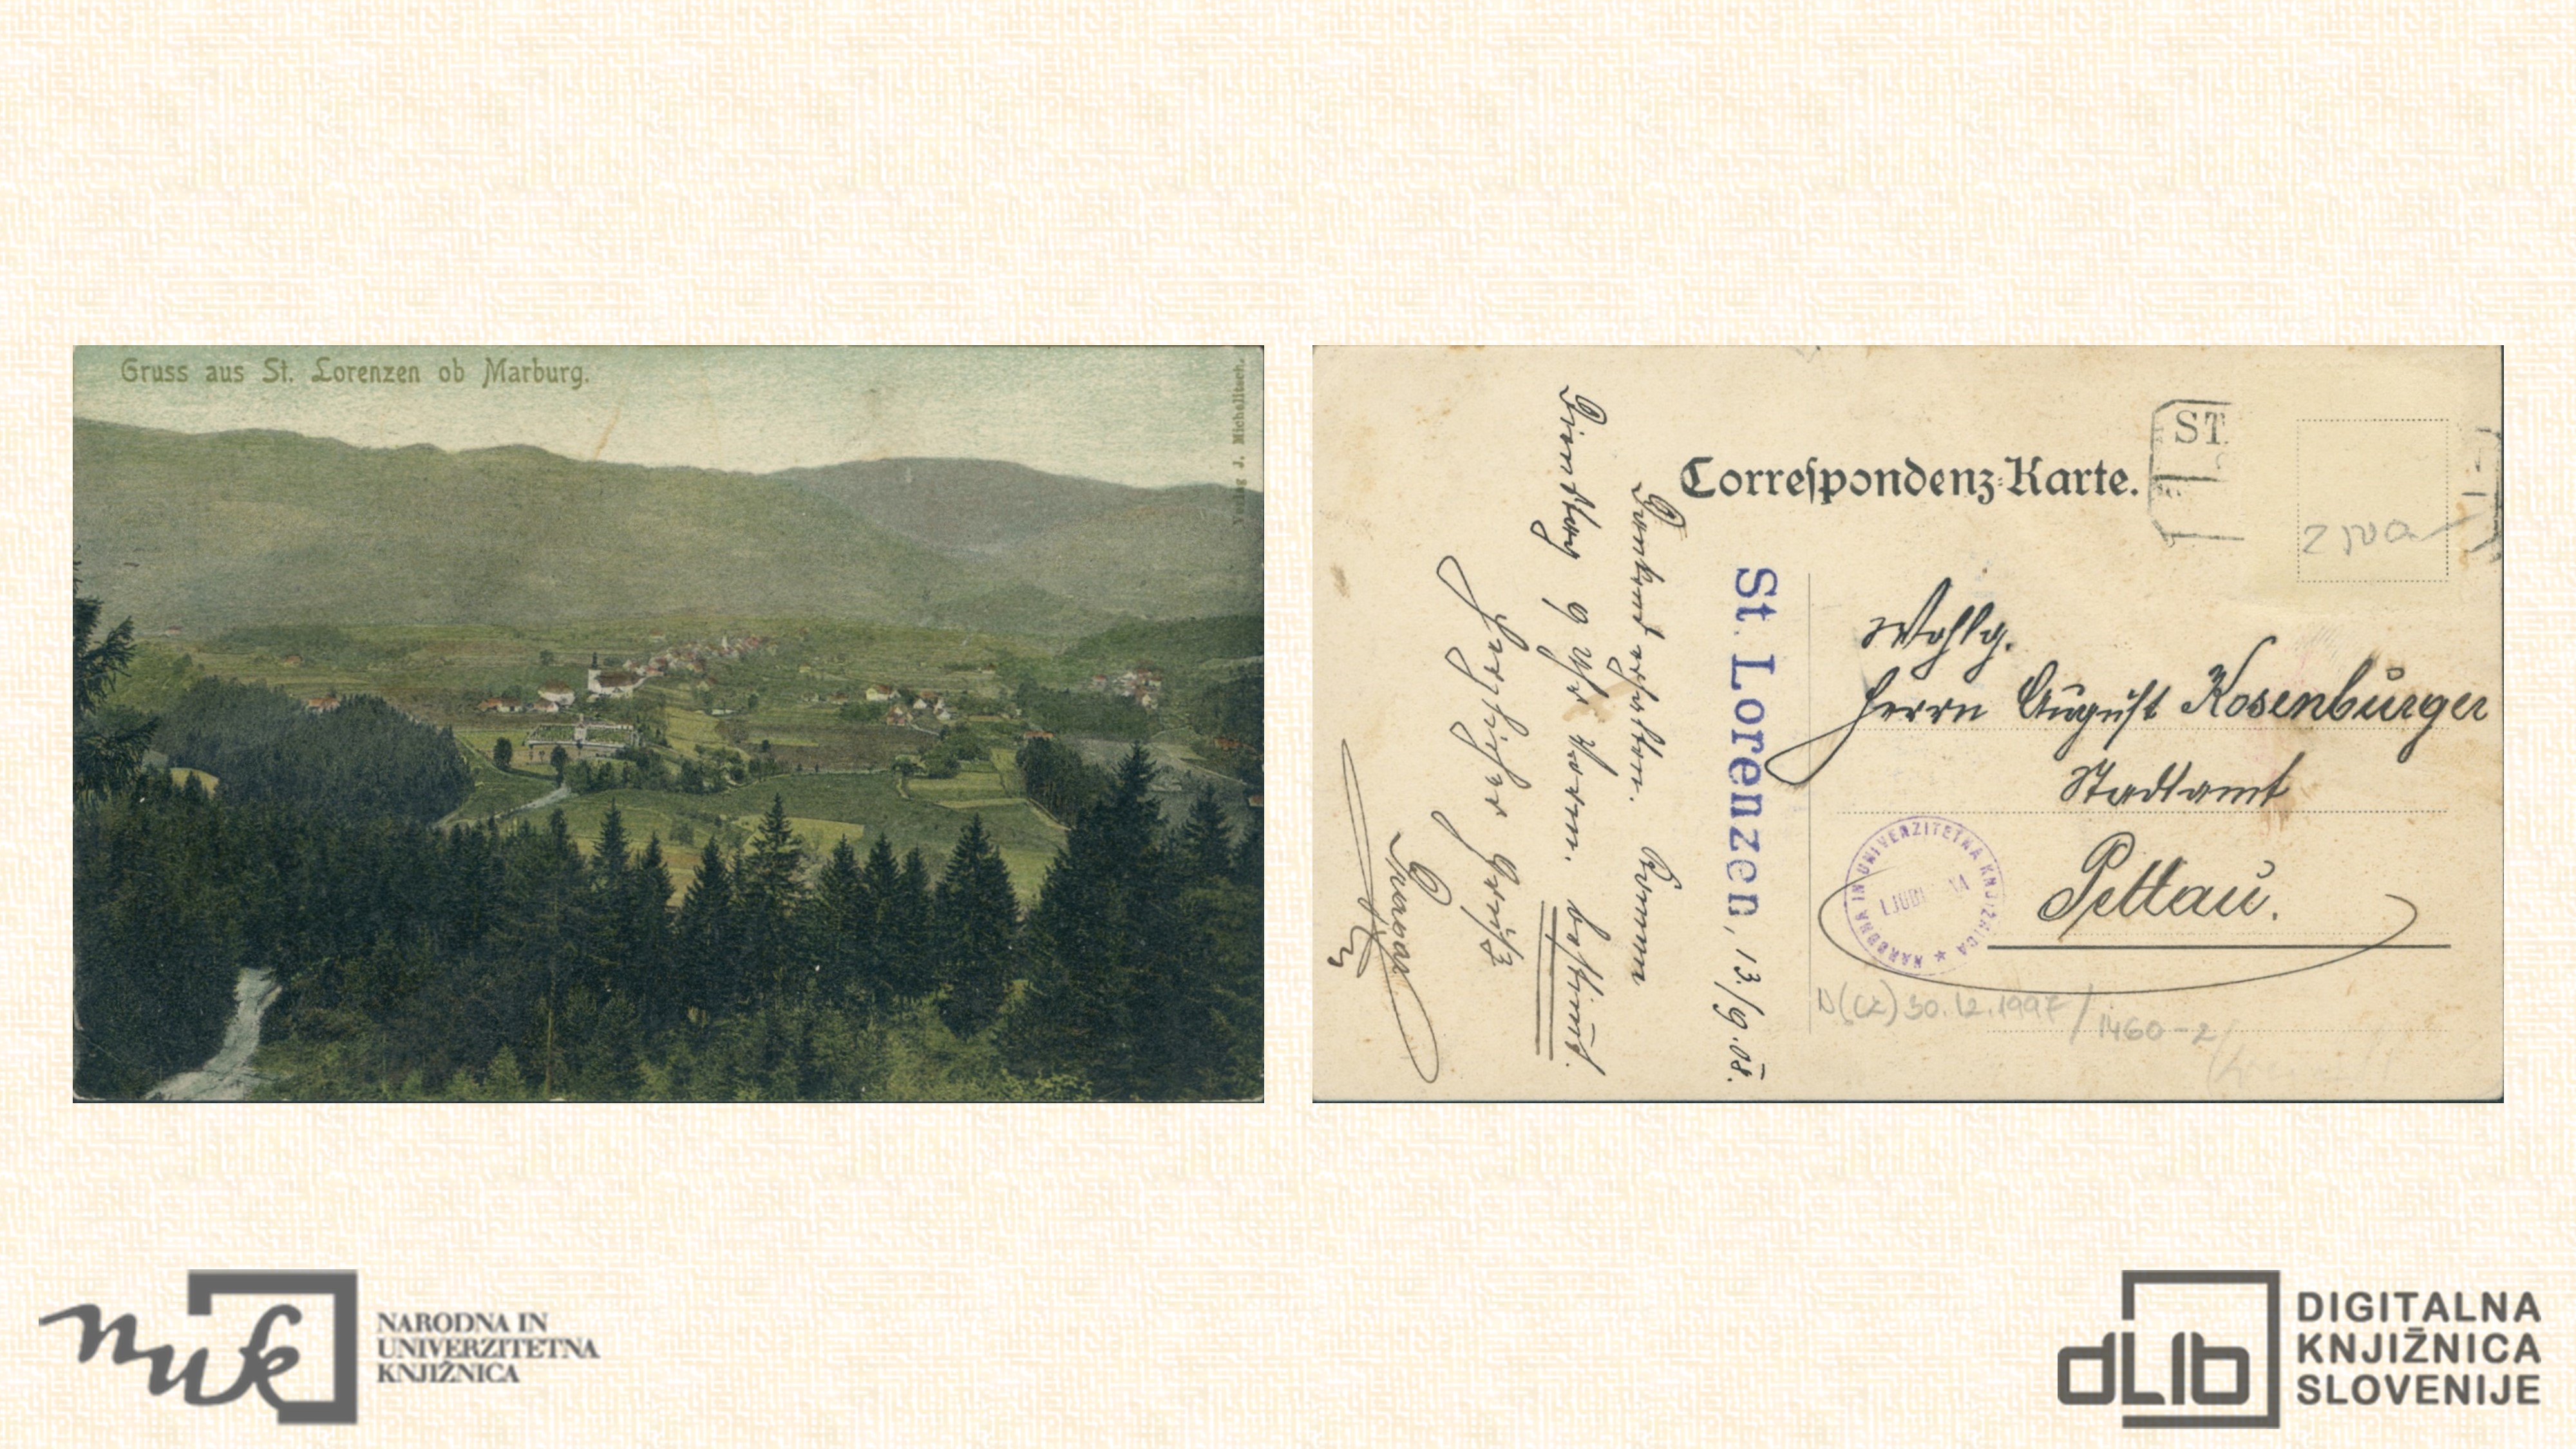 Gruss aus St. Lorenzen ob Marburg.
Verlag J. Michelitsch.
Correspondenz-Karte.
ST.
Wohlg.
Herrn August Rosenburger
Stadtamt
Pettau.
St. Lorenzen, 13./9.08.
Dankend erhalten. Kommen
Dienstag 9 Uhr Vorm. bestimmt.
Herzlicher Gruß
NARODNA IN UNIVERZITETNA KNJIŽNICA
LJUBLJANA
D(cz) 30.12.1997/
1460-2
nuk
NARODNA IN
UNIVERZITETNA
KNJIŽNICA
dLib
DIGITALNA
KNJIŽNICA
SLOVENIJE